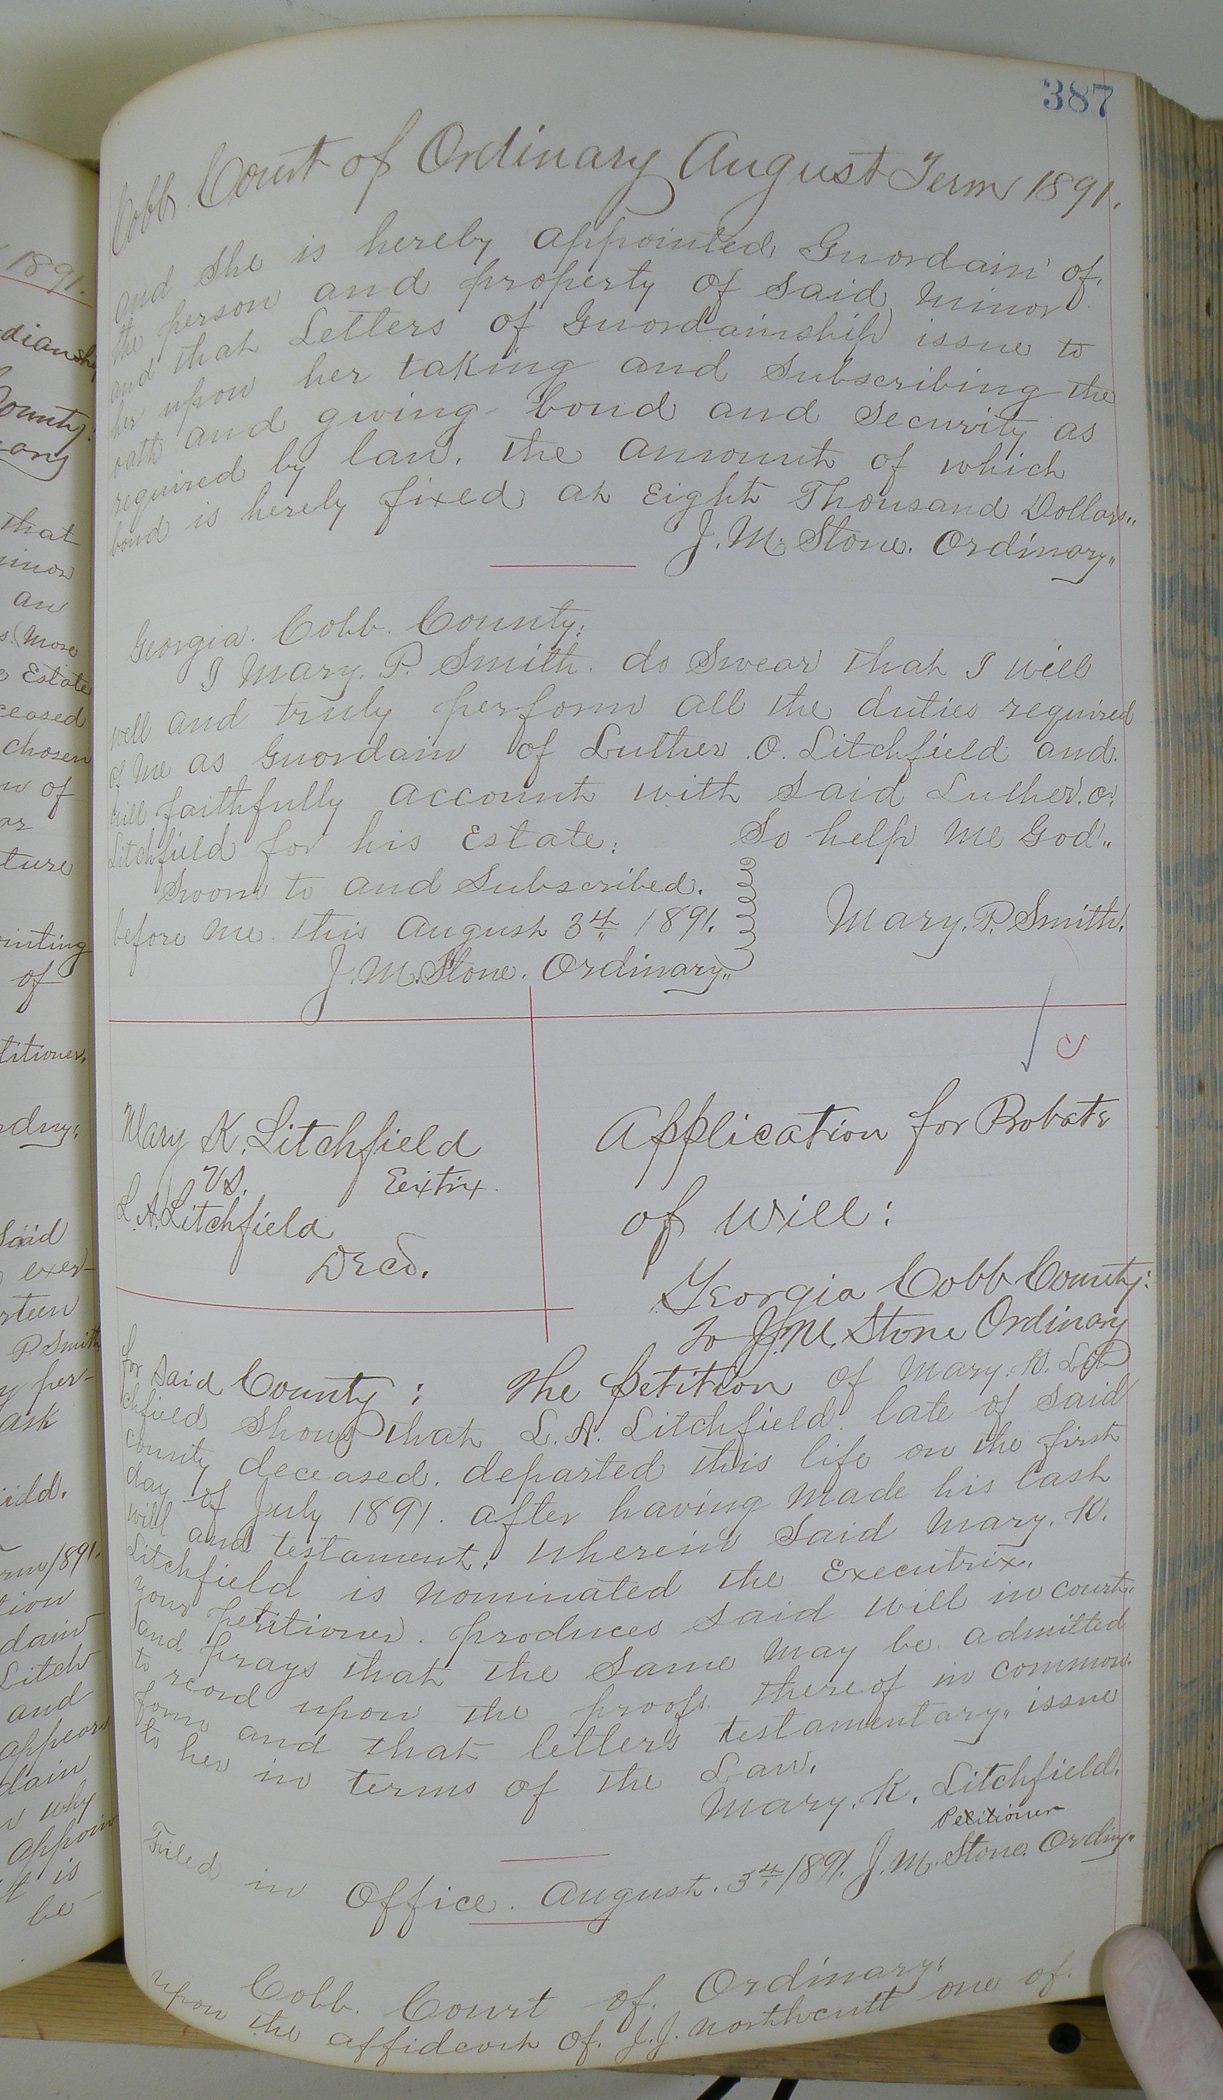 387
Cobb Court of Ordinary August Term 1891.
and she is hereby appointed Guordain of
the person and property of said minor
and that Letters of Guordainship issue to
her upon her taking and subscribing the
oath and giving bond and security as
required by law. the amount of which
bond is hereby fixed at Eight Thousand Dollars..
J. M. Stone. Ordinary..
Georgia. Cobb. County:
I Mary. P. Smith. do swear that I will
well and truly perform all the duties required
of me as Guordain of Luther O. Litchfield and
will faithfully account with said Luther. O.
Litchfield for his Estate: So help me God..
Sworn to and subscribed.
before me this August 3rd 1891. Mary. P. Smith.
J. M. Stone. Ordinary..
Mary K. Litchfield
vs. Eextrix.
L. A. Litchfield
Decd.
Application for Probate
of will:
Georgia Cobb County:
To J. M. Stone Ordinary
for said County: The Petition of Mary. K. Lit
chfield shows that L. A. Litchfield late of said
county, deceased. departed this life on the first
day of July 1891. after having made his last
will and testament. wherein said Mary. K.
Litchfield is nominated the Executrix.
your petitioner. produces said will in court.
and prays that the same may be admitted
to record upon the proofs thereof in common
form and that letters testamentary.. issue
to her in terms of the Law.
Mary. K. Litchfield.
Petitioner
Filed in Office. August. 3rd 1891. J. M. Stone. Ordiny..
Cobb. Court of. Ordinary:
upon the affidavit of. J. J. Northcutt one of
1891.
County:
that
minor
an
More
Estate
ceased
chosen
w of
ture
of
said
P. Smith
ask
Litch
and
appears
why
appoin
it is
be